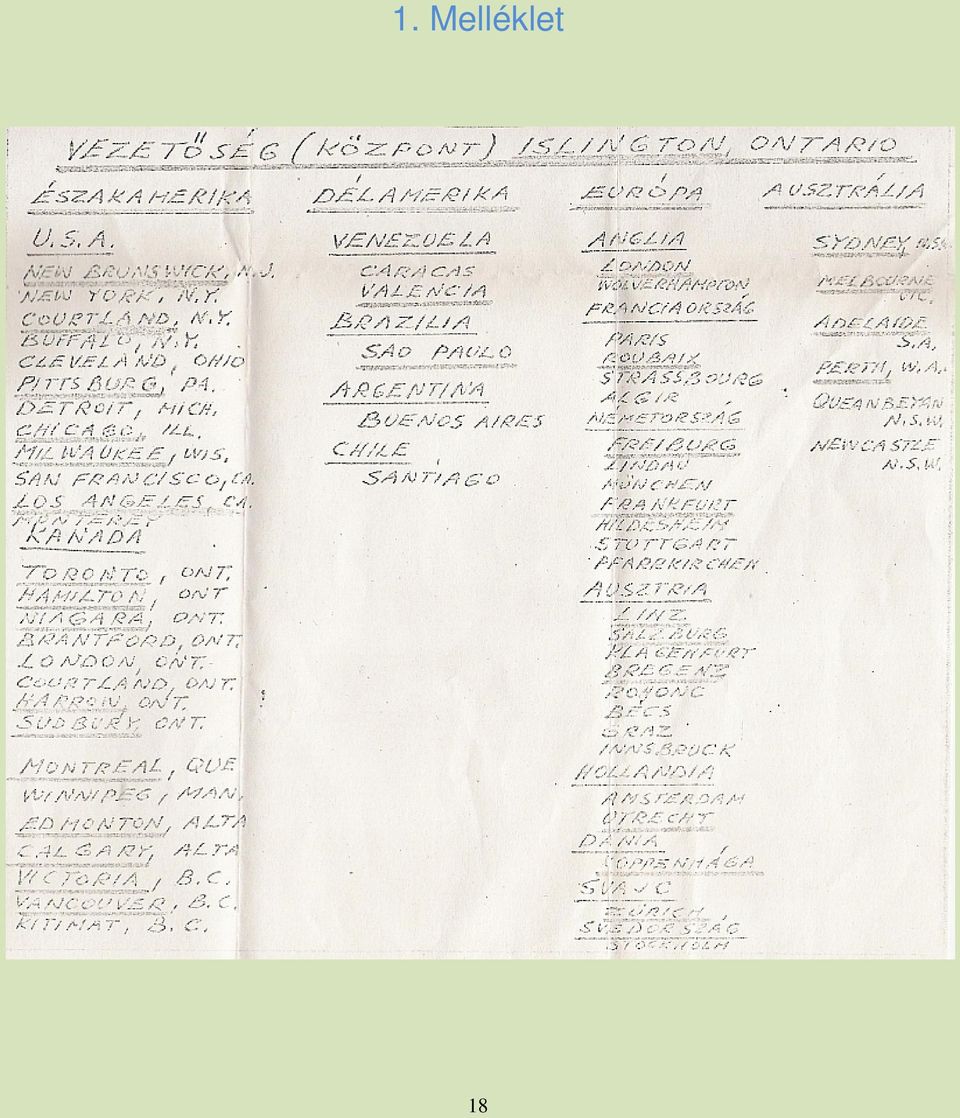 1. Melléklet
VEZETŐSÉG (KÖZPONT) ISLINGTON, ONTARIO
ÉSZAKAMERIKA
U.S.A.
NEW BRUNSWICK, N.J.
NEW YORK, N.Y.
COURTLAND, N.Y.
BUFFALO, N.Y.
CLEVELAND, OHIO
PITTSBURG, PA.
DETROIT, MICH.
CHICAGO, ILL.
MILWAUKEE, WIS.
SAN FRANCISCO, CA.
LOS ANGELES, CA.
MONTEREY
KANADA
TORONTO, ONT.
HAMILTON, ONT
NIAGARA, ONT.
BRANTFORD, ONT.
LONDON, ONT.
COURTLAND, ONT.
HARROW, ONT.
SUDBURY, ONT.
MONTREAL, QUE
WINNIPEG, MAN.
EDMONTON, ALTA
CALGARY, ALTA
VICTORIA, B.C.
VANCOUVER, B.C.
KITIMAT, B.C.
DÉLAMERIKA
VENEZUELA
CARACAS
VALENCIA
BRAZILIA
SAO PAULO
ARGENTINA
BUENOS AIRES
CHILE
SANTIAGO
EURÓPA
ANGLIA
LONDON
WOLVERHAMPTON
FRANCIAORSZÁG
PARIS
ROUBAIX
STRASSBOURG
ALGIR
NÉMETORSZÁG
FREIBURG
LINDAU
MÜNCHEN
FRANKFURT
HILDESHEIM
STUTTGART
PFARRKIRCHEN
AUSZTRIA
LINZ
SALZBURG
KLAGENFURT
BREGENZ
ROHONC
BÉCS
GRAZ
INNSBRUCK
HOLLANDIA
AMSTERDAM
UTRECHT
DÁNIA
COPPENHÁGA
SVÁJC
ZÜRICH
SVÉDORSZÁG
STOCKHOLM
AUSZTRÁLIA
SYDNEY,
MELBOURNE
ADELAIDE
S.A.
PERTH, W.A.
QUEANBEYAN
N.S.W.
NEWCASTLE
N.S.W.
18